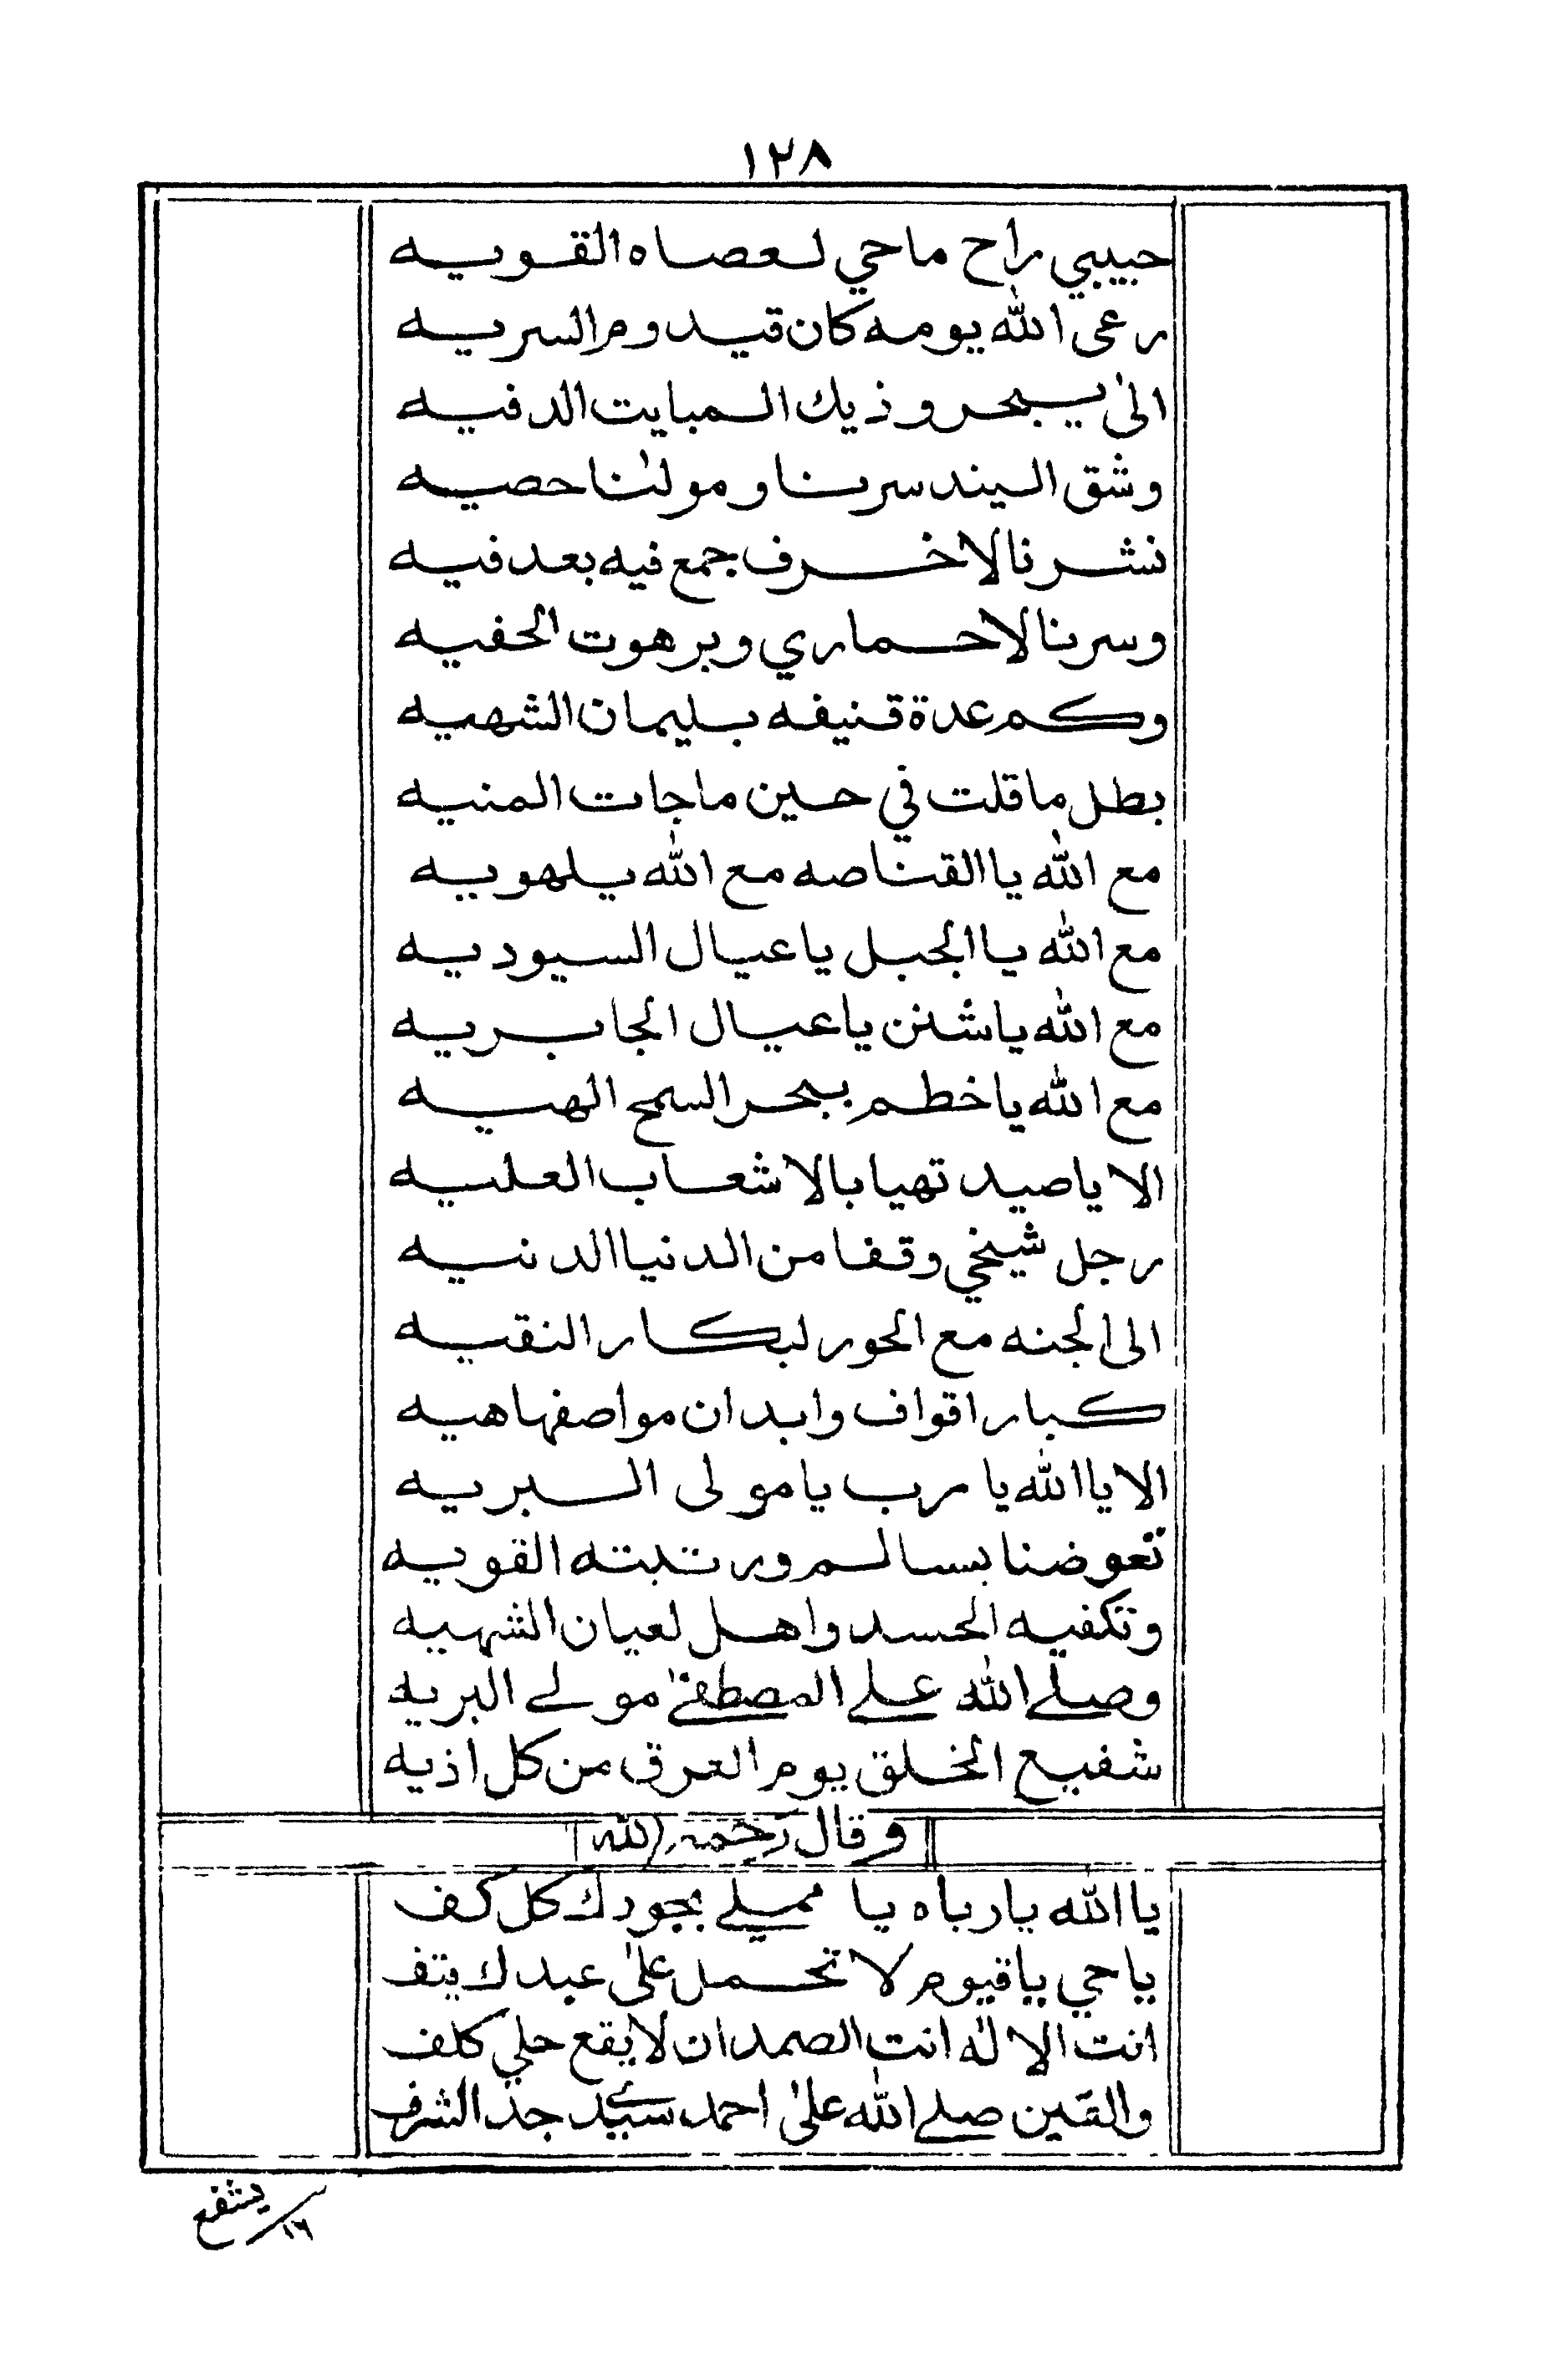 ١٢٨
حبيبي راح ماحي لعصاه القويه
رعى الله يومه كان قيدوم السريه
الىٰ يبحر وذيك المبايت الدفيه
وشق اليند سرنا ومولنا حصيه
نشرنا لاخرف جمع فيه بعد فيه
وسرنا لاحماري وبرهوت الحفيه
وكم عدة قنيفه بليمان الشهيه
بطل ماقلت في حين ماجات المنيه
مع الله يا القناصه مع الله يلهويه
مع الله يا الجبل يا عيال السيوديه
مع الله ياشنن ياعيال الجابريه
مع الله ياخطم بيحر السمح الهيه
الا ياصيد تهيا بالاشعاب العليه
رجل شيخي وقفا من الدنيا الدنيه
الى الجنه مع الحور لبكار النقيه
كبار اقواف وابدان مواصفها هيه
الا يا الله يا رب يا مولى البريه
تعوضنا بسالم ورتبته القويه
وتكفيه الحسد واهل لعيان الشهيه
وصلے الله علے المصطفےٰ مولے البريه
شفيع الخلق يوم العرق من كل اذيه
وقال رحمه الله
يا الله يارباه يا مملے بجودك كل كف
ياحي ياقيوم لا تحمل علىٰ عبدك يتف
انت الاله انت الصمد ان لا يقع حلي كلف
والقين صلے الله علىٰ احمد سيد جد الشرف
يشفع
١٦